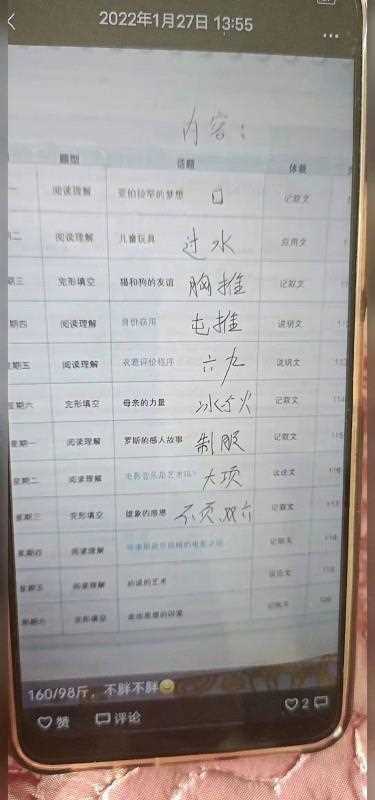 2022年1月27日 13:55
内容：
题型 话题 体裁
一 阅读理解 亚伯拉罕的梦想 口 记叙文
二 阅读理解 儿童玩具 过水 应用文
期三 完形填空 猫和狗的友谊 胸推 记叙文
期四 阅读理解 身份盗用 毛推 说明文
期五 阅读理解 六九 说明文
星期六 完形填空 母亲的力量 冰与火 记叙文
星期一 阅读理解 罗斯的感人故事 制服 记叙文
星期二 阅读理解 电影音乐是艺术吗? 大项 议论文
星期三 完形填空 雄象的感恩 双 记叙文
星期四 阅读理解 记叙文
星期五 阅读理解 的艺术 议论文
星期六 完形填空
160/98斤，不胖不胖
赞 评论 2